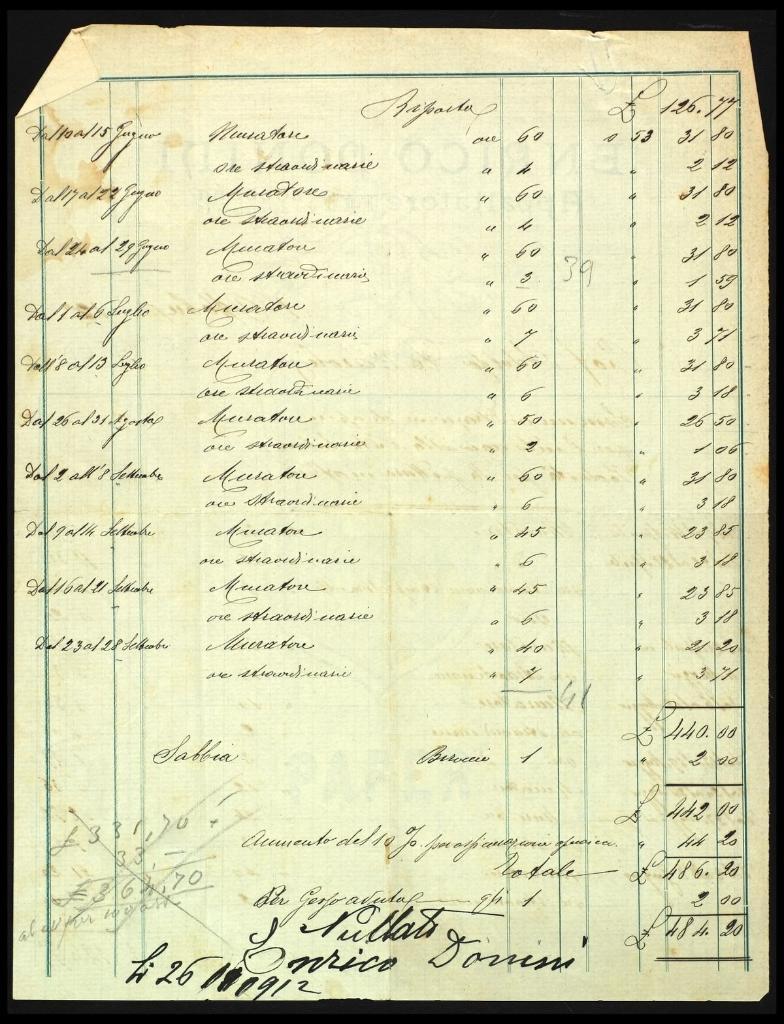 Riposta £ 126.77
Dal 10 al 15 Giugno Muratore ore 60 0 53 31 80
ore straordinarie " 4 " 2 12
Dal 17 al 22 Giugno Muratore " 60 " 31 80
ore straordinarie " 4 " 2 12
Dal 24 al 29 Giugno Muratore " 60 " 31 80
ore straordinarie " 3 39 " 1 59
Dal 1 al 6 Luglio Muratore " 60 " 31 80
ore straordinarie " 7 " 3 71
Dall'8 al 13 Luglio Muratore " 60 " 31 80
ore straordinarie " 6 " 3 18
Dal 26 al 31 Agosto Muratore " 50 " 26 50
ore straordinarie " 2 " 1 06
Dal 2 all'8 Settembre Muratore " 60 " 31 80
ore straordinarie " 6 " 3 18
Dal 9 al 14 Settembre Muratore " 45 " 23 85
ore straordinarie " 6 " 3 18
Dal 16 al 21 Settembre Muratore " 45 " 23 85
ore straordinarie " 6 " 3 18
Dal 23 al 28 Settembre Muratore " 40 " 21 20
ore straordinarie " 7 " 3 71
41
£ 440.00
Sabbia 1 " 2 00
£ 442 00
£ 331,70
Aumento del 10 % per " 44 20
33,—
Totale £ 486.20
£ 364,70
Per Gesso avuto 1 2 00
£ 484.20
Enrico Donini
Li 26 912